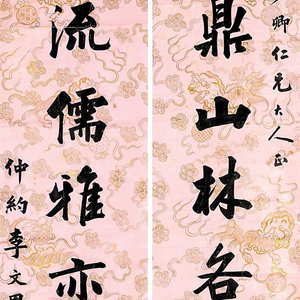 卿仁兄大人正
鼎山林各
流儒雅亦
仲約李文田